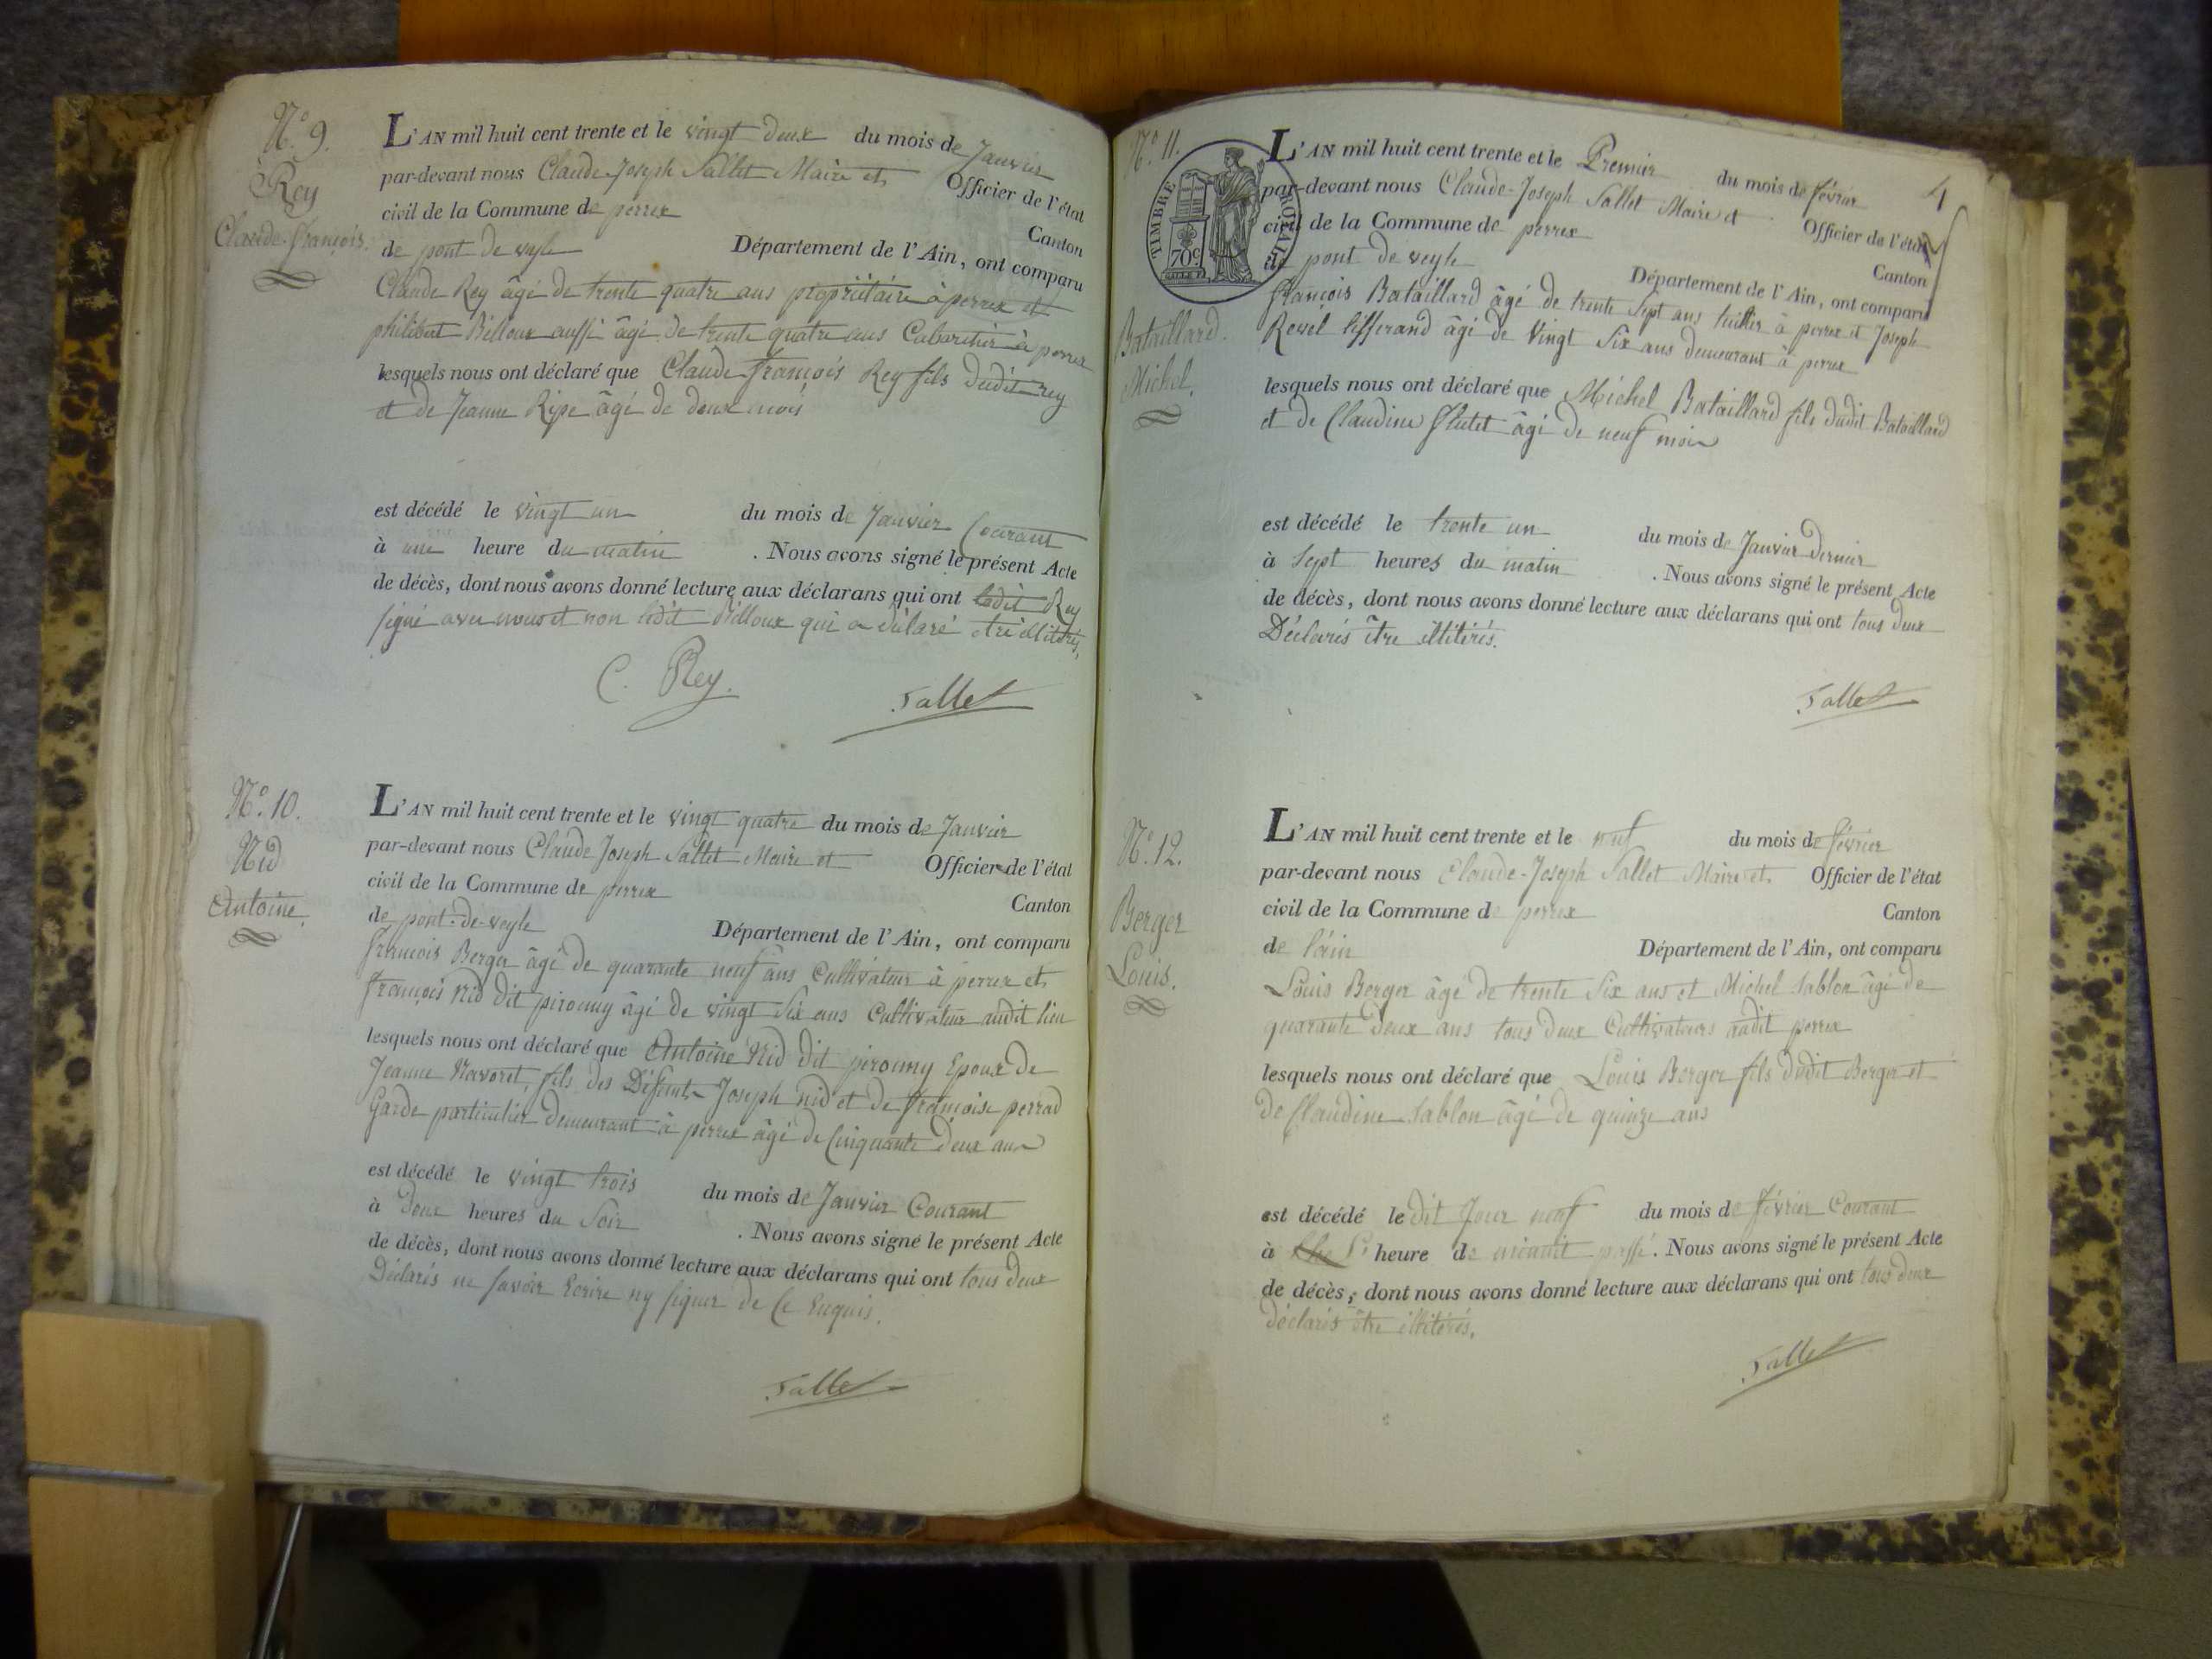 N.º 9.
Rey
Claude-françois.
L'AN mil huit cent trente et le vingt deux du mois de Janvier
par-devant nous Claude-Joseph Sallet Maire et Officier de l'état
civil de la Commune de perrex Canton
de pont de veyle Département de l'Ain, ont comparu
Claude Rey âgé de trente quatre ans propriétaire à perrex et
philibert Billoux aussi âgé de trente quatre ans Cabaretier à perrex
lesquels nous ont déclaré que Claude françois Rey fils dudit rey
et de Jeanne Ripe âgé de deux mois
est décédé le vingt un du mois de Janvier Courant
à une heure du matin . Nous avons signé le présent Acte
de décès, dont nous avons donné lecture aux déclarans qui ont ledit Rey
signé avec nous et non ledit Billoux qui a déclaré être illitérés,
C. Rey. Sallet
N.º 10.
Nid
Antoine.
L'AN mil huit cent trente et le vingt quatre du mois de Janvier
par-devant nous Claude Joseph Sallet Maire et Officier de l'état
civil de la Commune de perrex Canton
de pont-de-veyle Département de l'Ain, ont comparu
françois Berger âgé de quarante neuf ans Cultivateur à perrex et
françois Nid dit pirouny âgé de vingt Six ans Cultivateur audit lieu
lesquels nous ont déclaré que Antoine Nid dit pirouny Epoux de
Jeanne Navoret, fils des Défunts Joseph nid et de françoise perrad
Garde particulier demeurant à perrex âgé de Cinquante deux ans
est décédé le vingt trois du mois de Janvier Courant
à Doux heures du Soir . Nous avons signé le présent Acte
de décès, dont nous avons donné lecture aux déclarans qui ont tous deux
Déclarés ne savoir Ecrire ny signer de Ce Enquis.
Sallet
4
N.º 11.
TIMBRE ROYAL
70c
Bataillard
Michel.
L'AN mil huit cent trente et le Premier du mois de février
par-devant nous Claude-Joseph Sallet Maire et Officier de l'état
civil de la Commune de perrex Canton
de pont de veyle Département de l'Ain, ont comparu
françois Bataillard âgé de trente Sept ans à perrex et Joseph
Revel tisserand âgé de Vingt Six ans demeurant à perrex
lesquels nous ont déclaré que Michel Bataillard fils dudit Bataillard
et de Claudine Flutet âgé de neuf mois
est décédé le trente un du mois de Janvier dernier
à Sept heures du matin . Nous avons signé le présent Acte
de décès, dont nous avons donné lecture aux déclarans qui ont tous deux
Déclarés être illitérés.
Sallet
N.º 12.
Berger
Louis.
L'AN mil huit cent trente et le neuf du mois de février
par-devant nous Claude-Joseph Sallet Maire et Officier de l'état
civil de la Commune de perrex Canton
de láin Département de l'Ain, ont comparu
Louis Berger âgé de trente Six ans et Michel Sablon âgé de
quarante deux ans tous deux Cultivateurs audit perrex
lesquels nous ont déclaré que Louis Berger fils dudit Berger et
de Claudine Sablon âgé de quinze ans
est décédé le dit Jour neuf du mois de février Courant
à heure de minuit passé. Nous avons signé le présent Acte
de décès, dont nous avons donné lecture aux déclarans qui ont tous deux
déclarés être illitérés.
Sallet